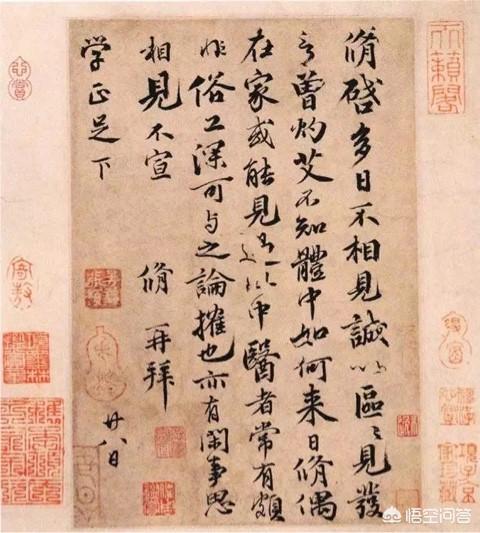 脩啓多日不相見誠以區〻見發
言曾灼艾不知體中如何来日脩偶
在家或能見過此中醫者常有頗
非俗工深可与之論搉也亦有閑事思
相見不宣 脩再拜
学正足下 廿八日
天籟閣
悟空问答